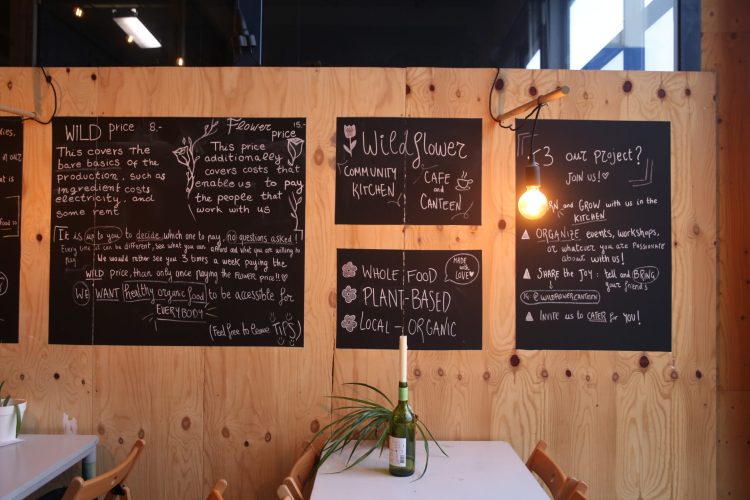 WILD price 8.-
This covers the
bare basics of the
production, such as
ingredient costs
electricity, and
some rent
Flower price 15.-
This price
additionally
covers costs that
enable us to pay
the people that
work with us
It is up to you to decide which one to pay, no questions asked!
Every time it can be different, see what you can afford and what you are willing to
pay. We would rather see you 3 times a week paying the
WILD price, than only once paying the FLOWER price!!♡
WE WANT healthy organic food to be accessible for
EVERYBODY
(Feel free to leave TIPS)
Wildflower
COMMUNITY
KITCHEN
CAFE
AND
CANTEEN
MADE
with
LOVE♥
WHOLE FOOD
PLANT-BASED
LOCAL - ORGANIC
<3 our project?
JOIN US!♡
and GROW with us in the
KITCHEN
ORGANIZE events, workshops,
or whatever you are PASSIONATE
about WITH US!
SHARE the JOY: tell and BRING
your friends
IG: @WILDFLOWERCANTEEN
INVITE us to CATER for YOU!